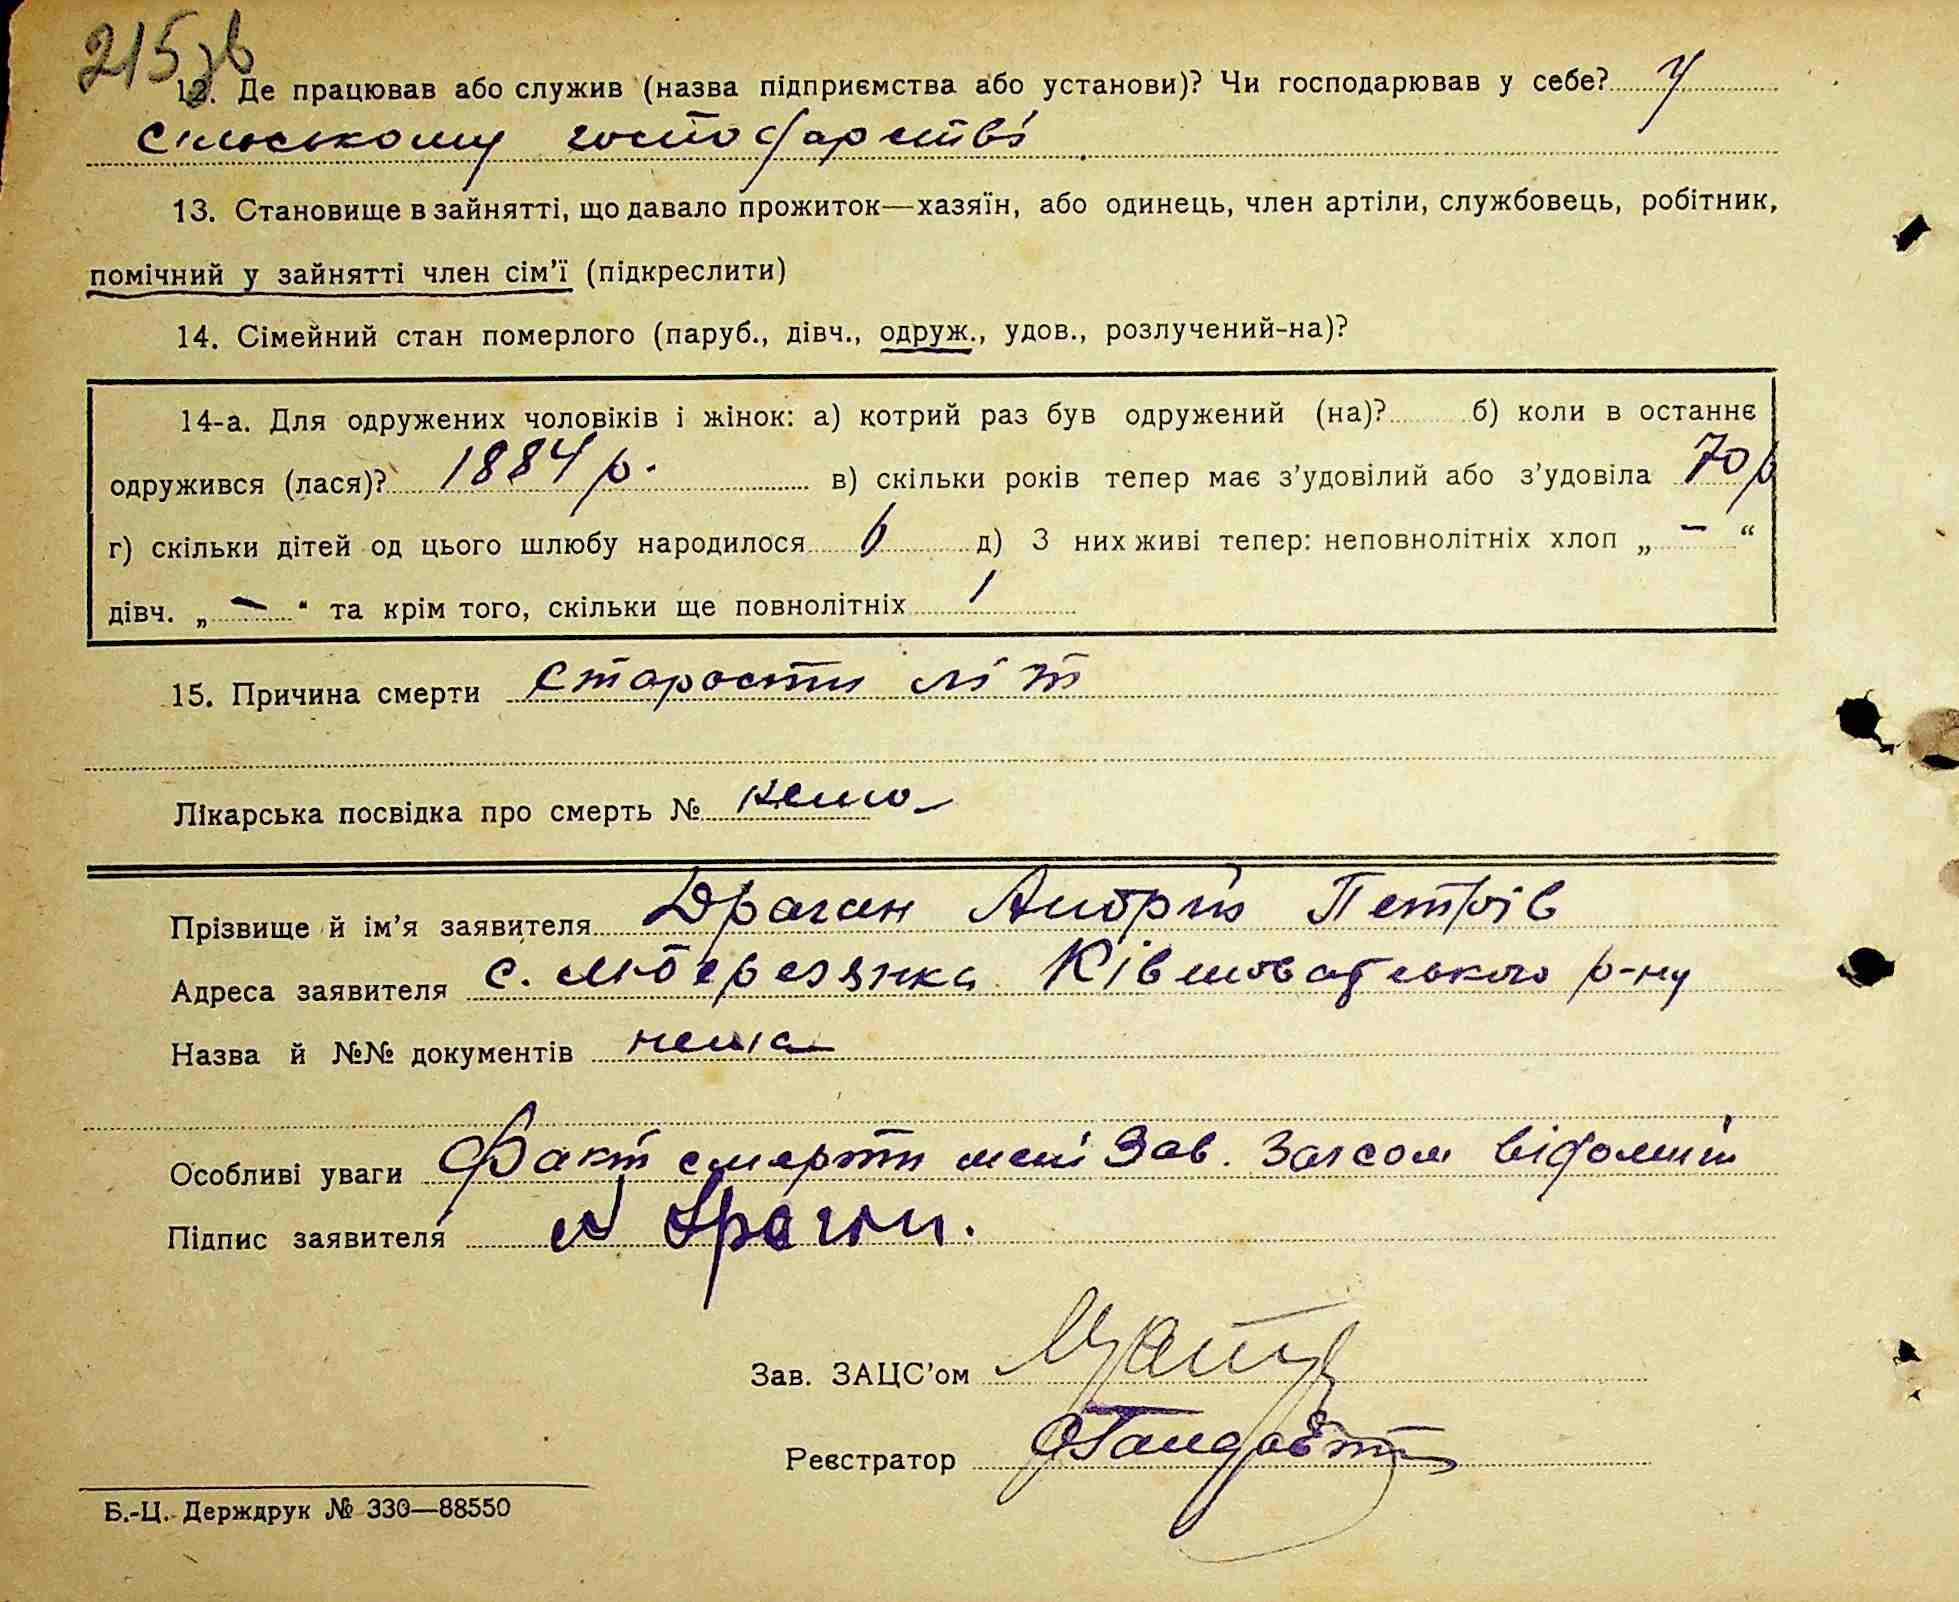 215зв
12. Де працював або служив (назва підприємства або установи)? Чи господарював у себе? У
сільському господарстві
13. Становище в зайнятті, що давало прожиток—хазяїн, або одинець, член артіли, службовець, робітник,
помічний у зайнятті член сім’ї (підкреслити)
14. Сімейний стан померлого (паруб., дівч., одруж., удов., розлучений-на)?
14-а. Для одружених чоловіків і жінок: а) котрий раз був одружений (на)? б) коли в останнє
одружився (лася)? 1884 р. в) скільки років тепер має з’удовілий або з’удовіла 70 р
г) скільки дітей од цього шлюбу народилося 6 д) З них живі тепер: неповнолітніх хлоп „ — “
дівч. „ — “ та крім того, скільки ще повнолітніх 1
15. Причина смерти старости літ
Лікарська посвідка про смерть № нема
Прізвище й ім’я заявителя Драган Андрій Петрів
Адреса заявителя с. Р-ну
Назва й №№ документів нема
Особливі уваги Факт смерти мені Зав. Загсом відомий
Підпис заявителя А Драган.
Зав. ЗАЦС’ом
Реєстратор
Б.-Ц. Держдрук № 330—88550